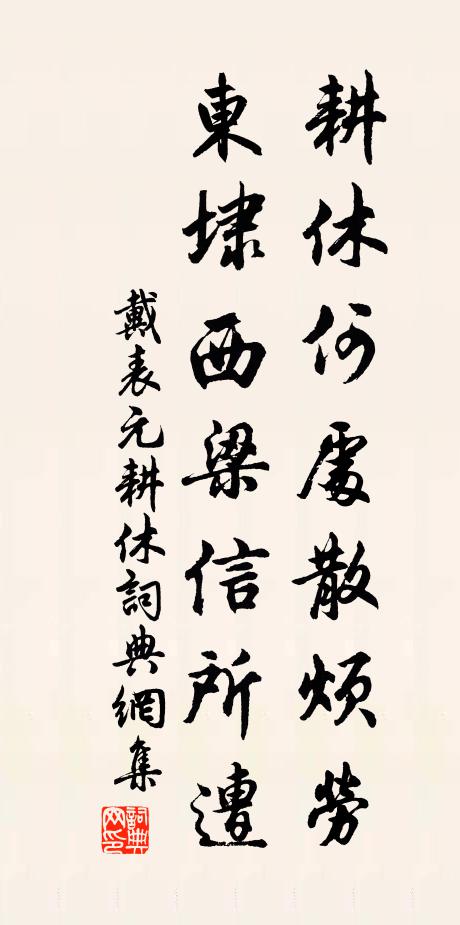 耕休何處散煩勞
東埭西梁信所遭
戴表元耕休詞典網集
詞典網印